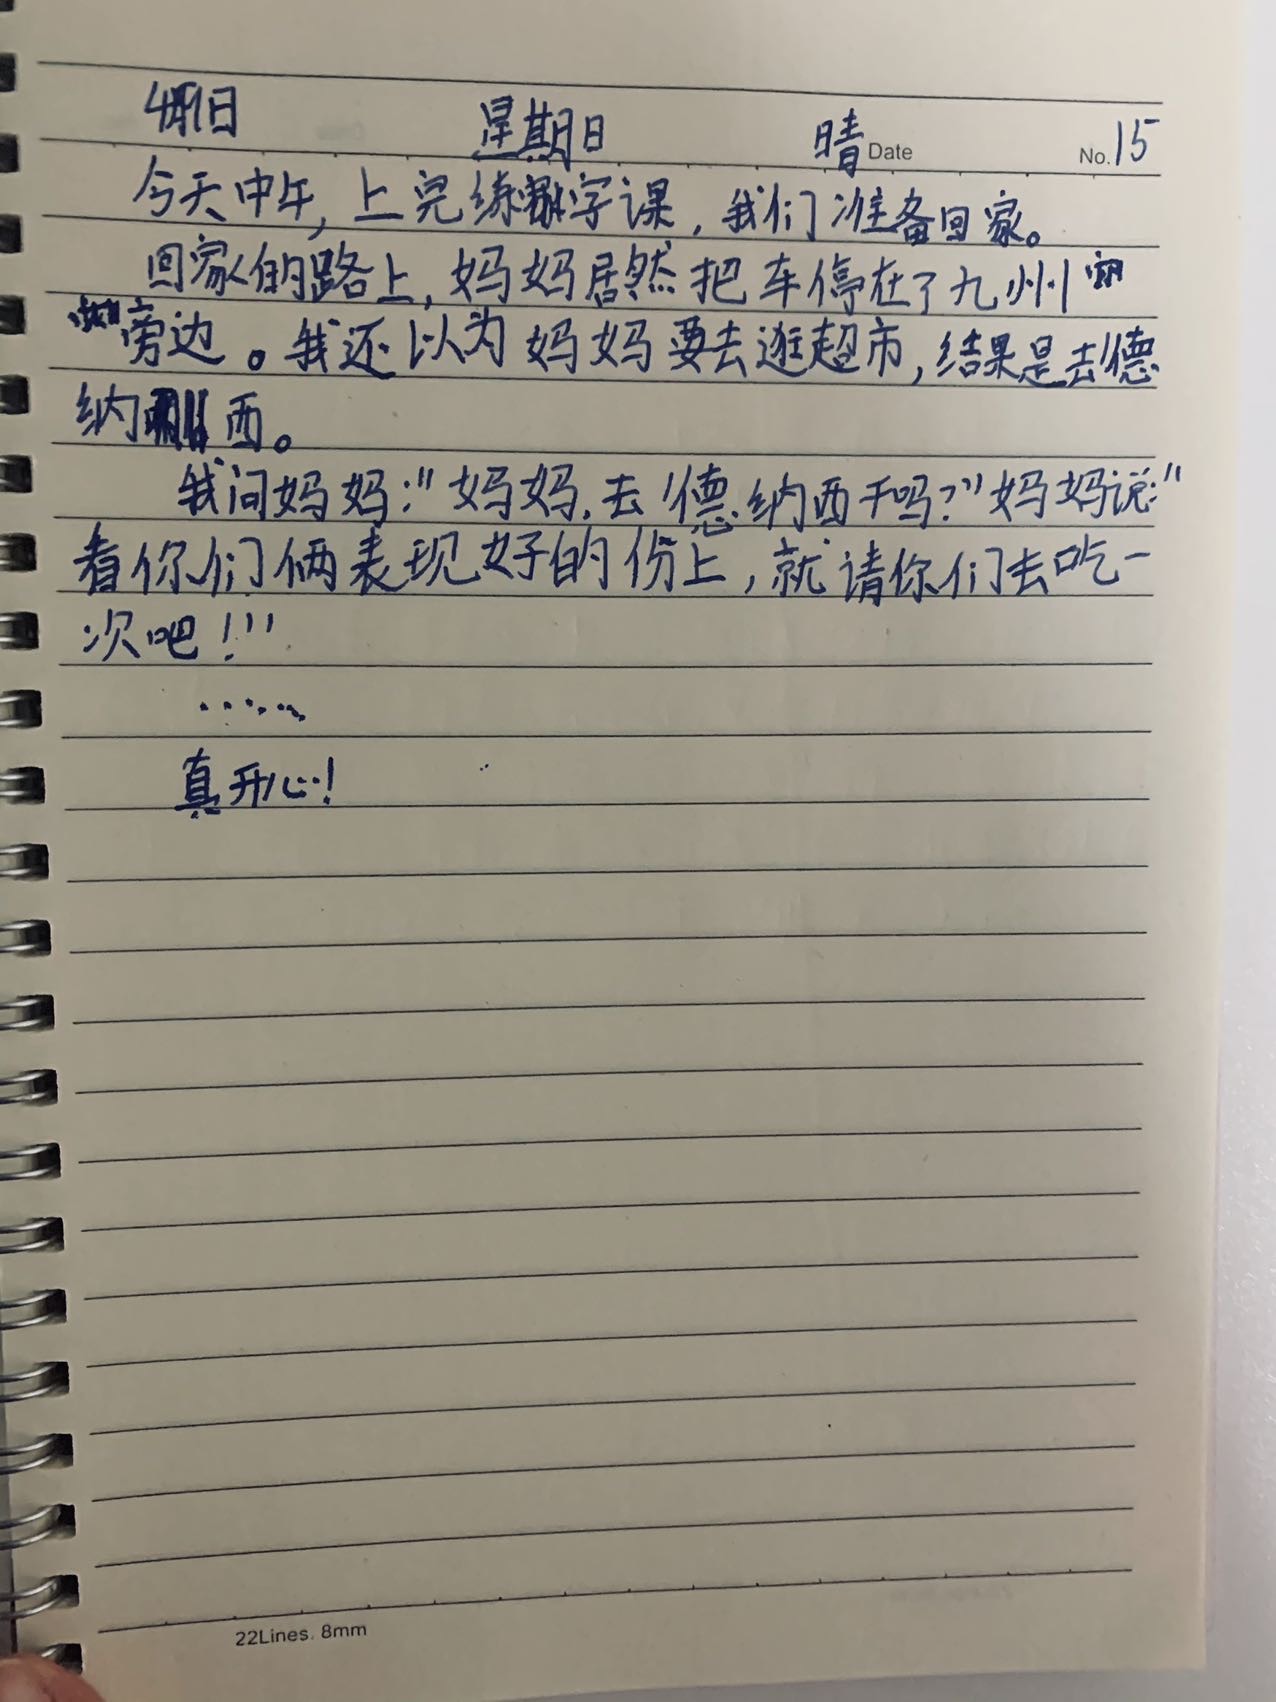 4月1日 星期日 晴 Date No. 15
今天中午，上完练字课，我们准备回家。
回家的路上，妈妈居然把车停在了九州
旁边。我还以为妈妈要去逛超市，结果是去德
纳西。
我问妈妈：“妈妈，去德纳西干吗？”妈妈说：“
看你们俩表现好的份上，就请你们去吃一
次吧！”
……
真开心！
22Lines. 8mm